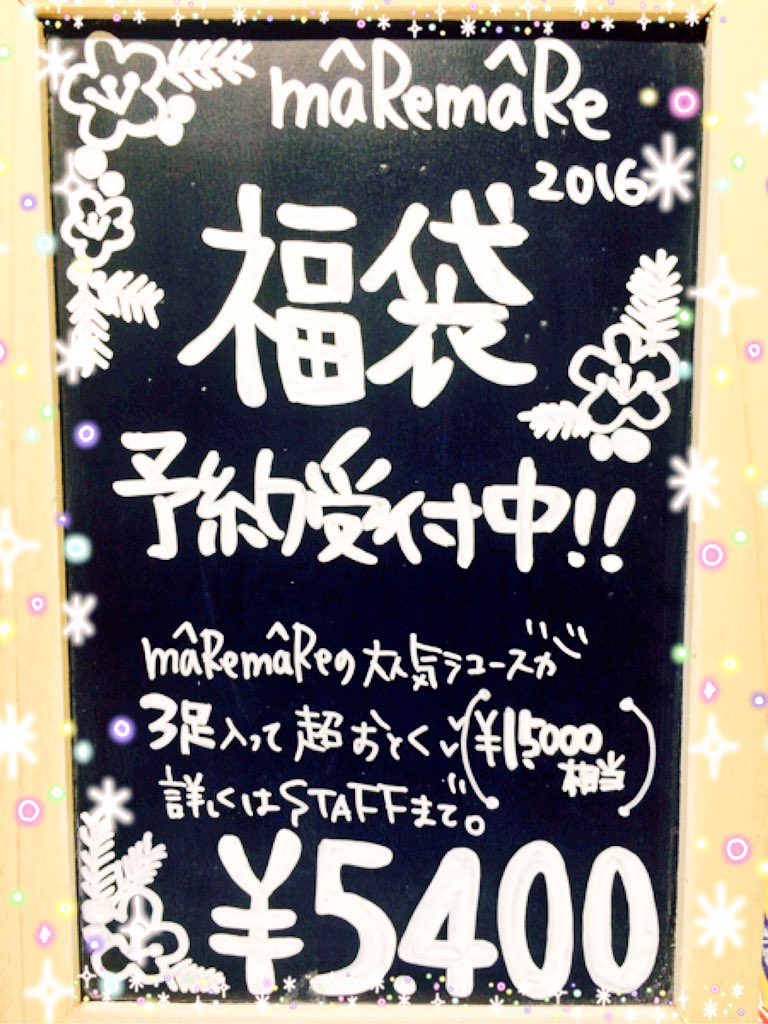 mâRemâRe
2016
福袋
予約受付中!!
mâRemâReの大人気ラユースが
3足入って超おとく(¥15000相当)
詳しくはSTAFFまで。
¥5400